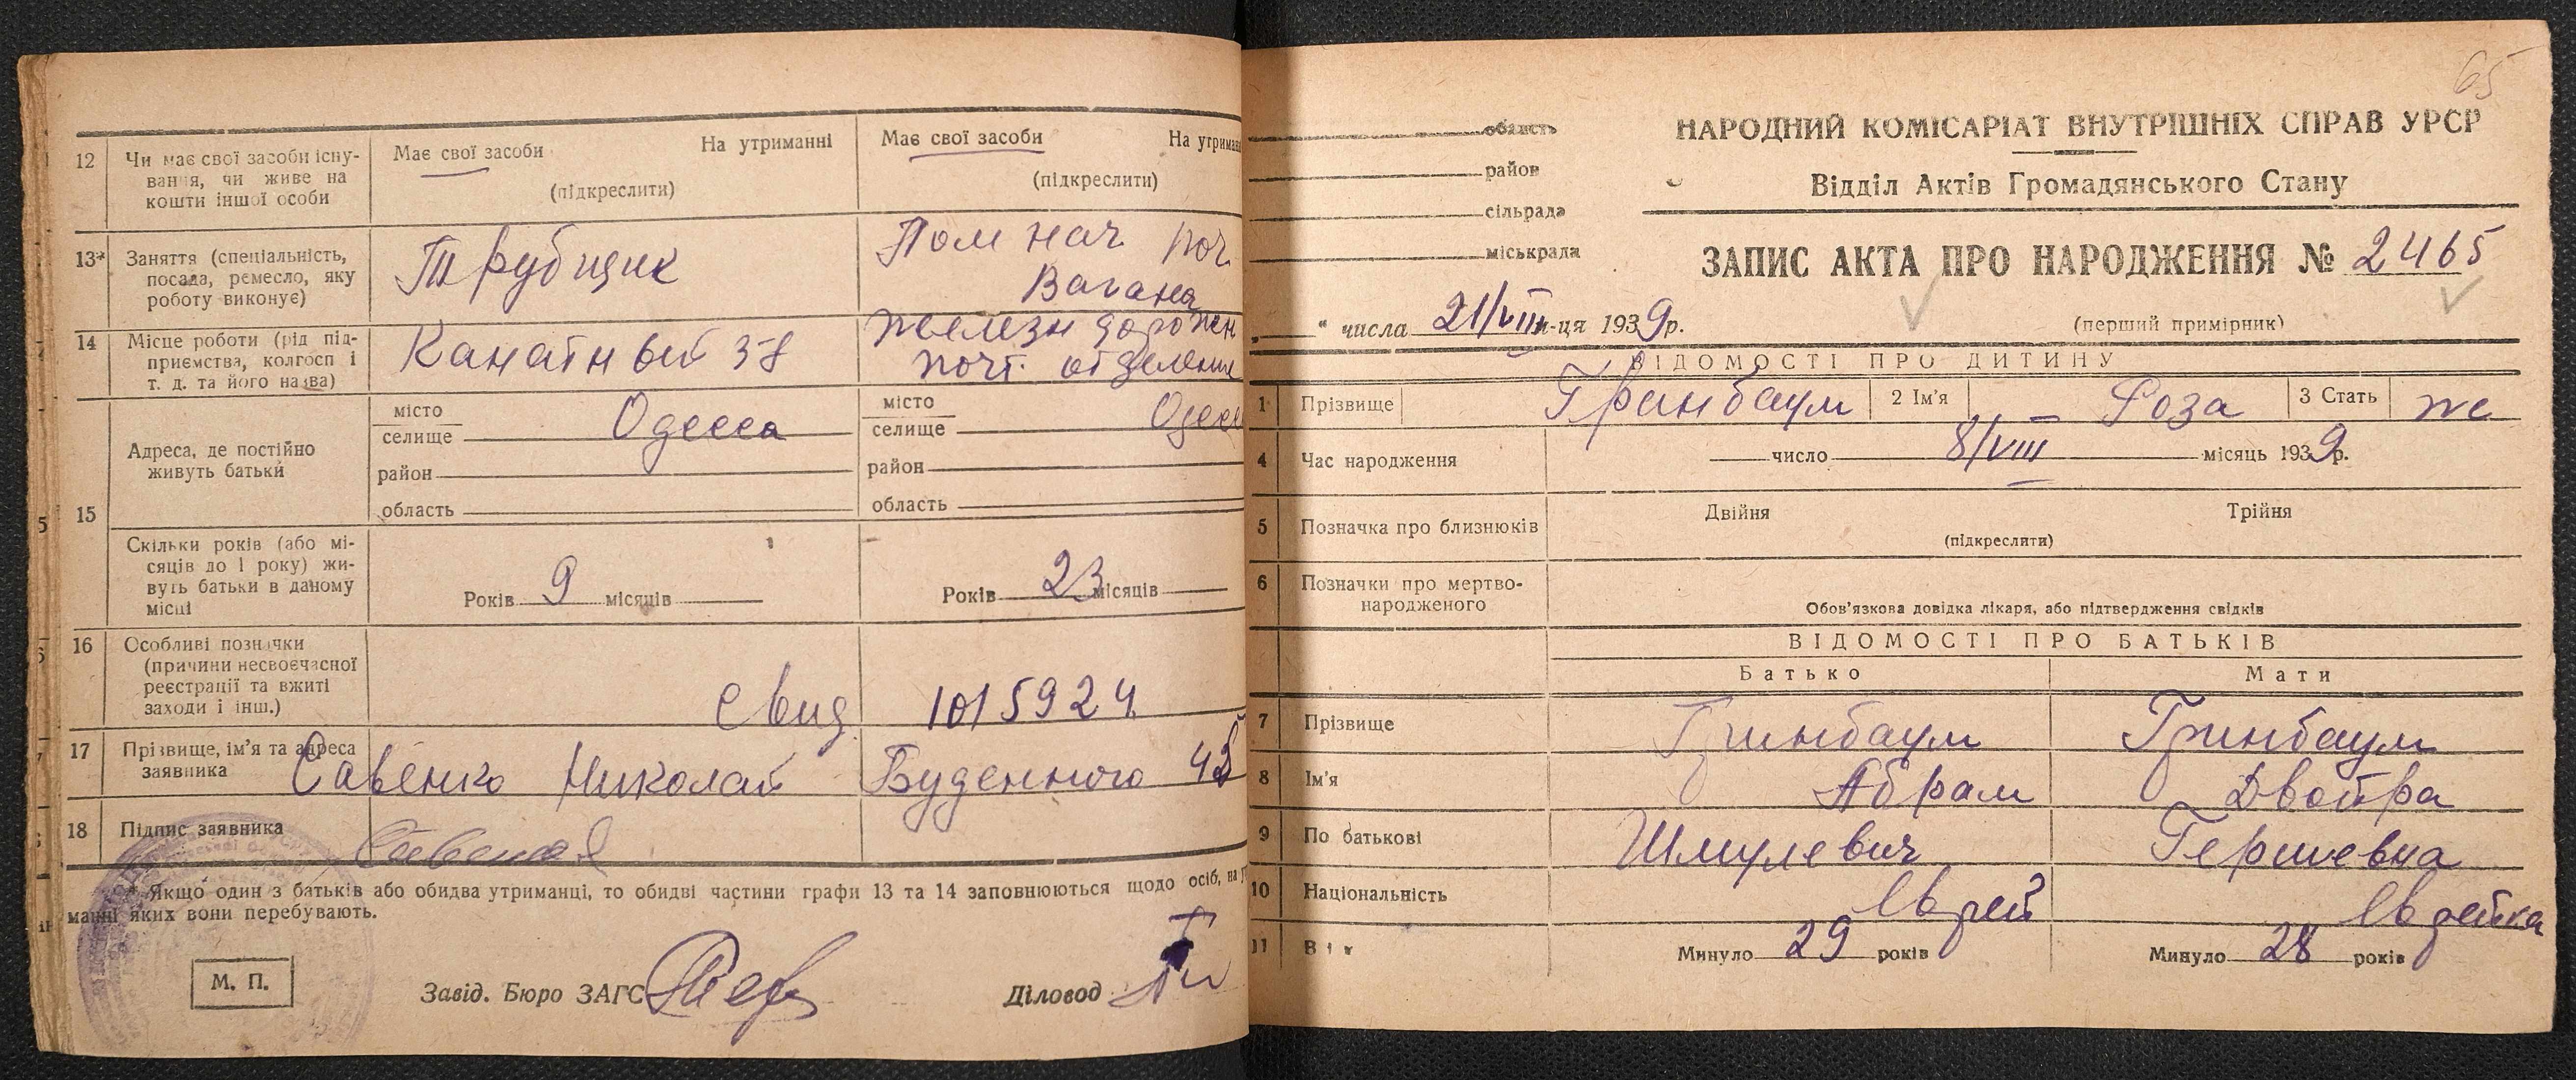 12
Чи має свої засоби існу-
вання, чи живе на
кошти іншої особи
Має свої засоби
На утриманні
(підкреслити)
Має свої засоби
На утриман
(підкреслити)
13*
Заняття (спеціальність,
посада, ремесло, яку
роботу виконує)
Трубщик
Пом нач поч.
Вагана
14
Місце роботи (рід під-
приємства, колгосп і
т. д. та його назва)
Канатн вит 38
железн дорожн
почт. отделение
15
Адреса, де постійно
живуть батьки
місто
селище
Одесса
район
область
місто
селище
Одес
район
область
Скільки років (або мі-
сяців до 1 року) жи-
вуть батьки в даному
місці
Років 9 місяців
Років 23 місяців
16
Особливі позначки
(причини несвоєчасної
реєстрації та вжиті
заходи і інш.)
Свид. 1015924
17
Прізвище, ім'я та адреса
заявника
Савенко Николай Буденного 42
18
Підпис заявника
* Якщо один з батьків або обидва утриманці, то обидві частини графи 13 та 14 заповнюються щодо осіб, на у
манні яких вони перебувають.
М. П.
Завід. Бюро ЗАГС
Діловод
65
область
район
сільрада
міськрада
НАРОДНИЙ КОМІСАРІАТ ВНУТРІШНІХ СПРАВ УРСР
Відділ Актів Громадянського Стану
ЗАПИС АКТА ПРО НАРОДЖЕННЯ № 2465
(перший примірник)
" числа 21/VIII м-ця 1939р.
ВІДОМОСТІ ПРО ДИТИНУ
1 Прізвище Гринбаум 2 Ім'я Роза 3 Стать же
4 Час народження число 8/VIII місяць 1939р.
5 Позначка про близнюків Двійня Трійня
(підкреслити)
6 Позначки про мертво-
народженого
Обов'язкова довідка лікаря, або підтвердження свідків
ВІДОМОСТІ ПРО БАТЬКІВ
Батько Мати
7 Прізвище Гринбаум Гринбаум
8 Ім'я Абрам Двойра
9 По батькові Шмулевич Гершевна
10 Національність Еврей Еврейка
11 Вік Минуло 29 років Минуло 28 років